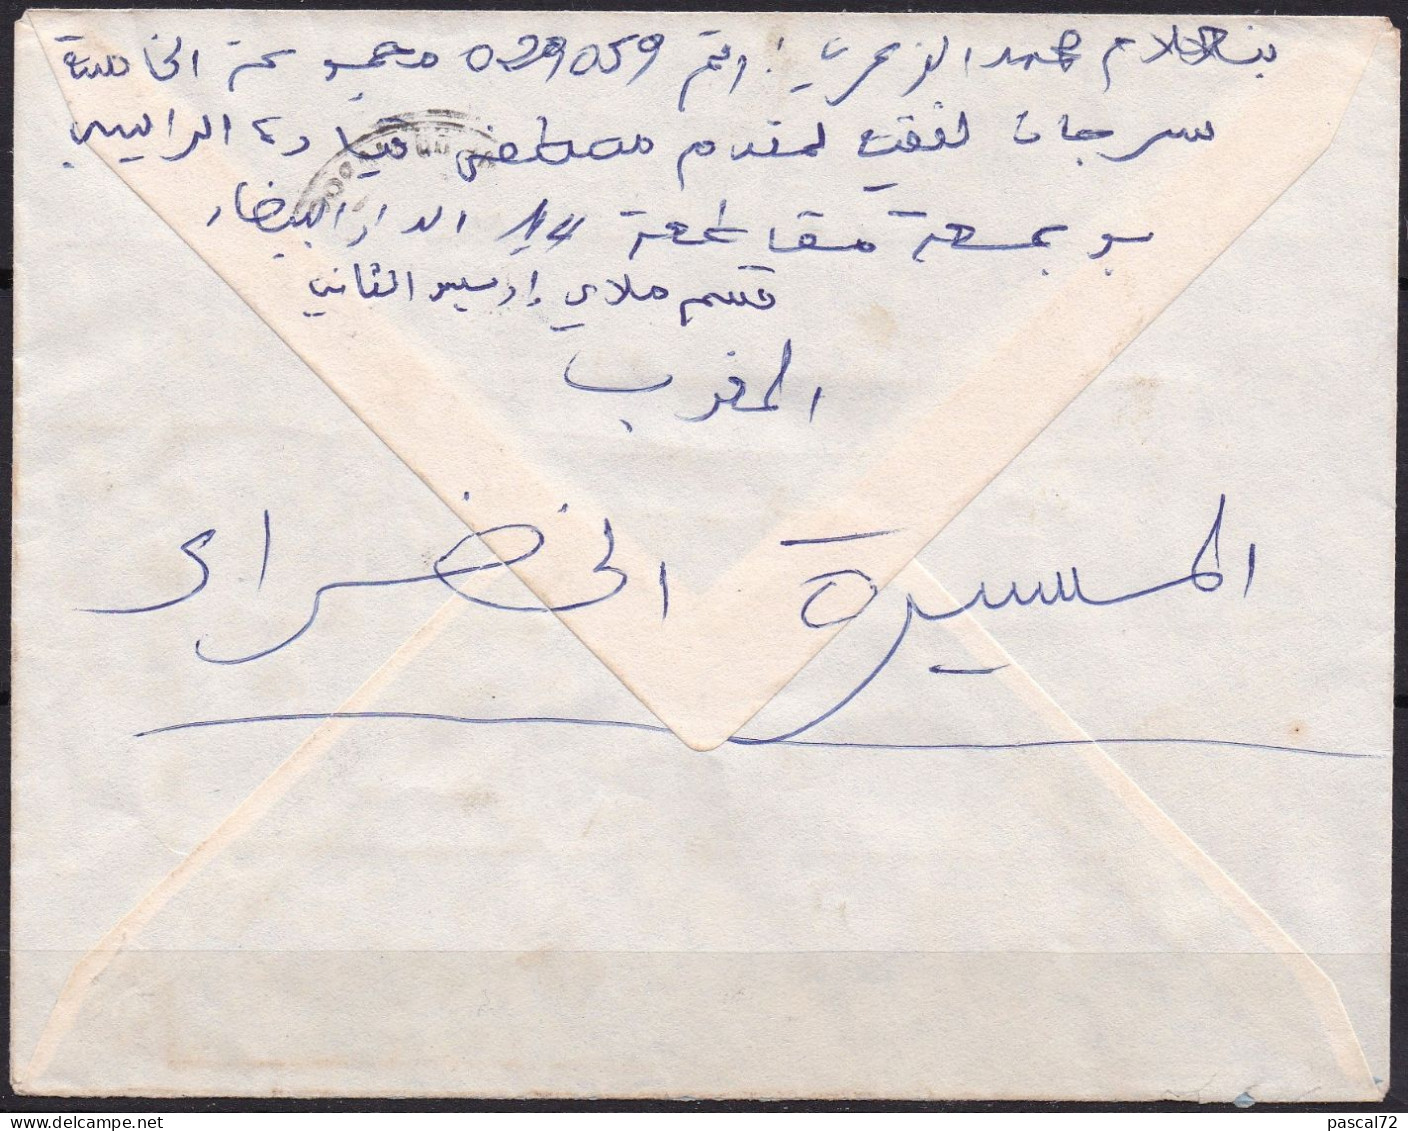 محمد الزهري رقم 029059 مجموعة الخامسة
سرجان لمقدم مصطفى
بوجمعة مقاطعة 14 الدار البيضاء
قسم ملاي إدريس الثاني
المغرب
المسيرة الخضراء
pascal72